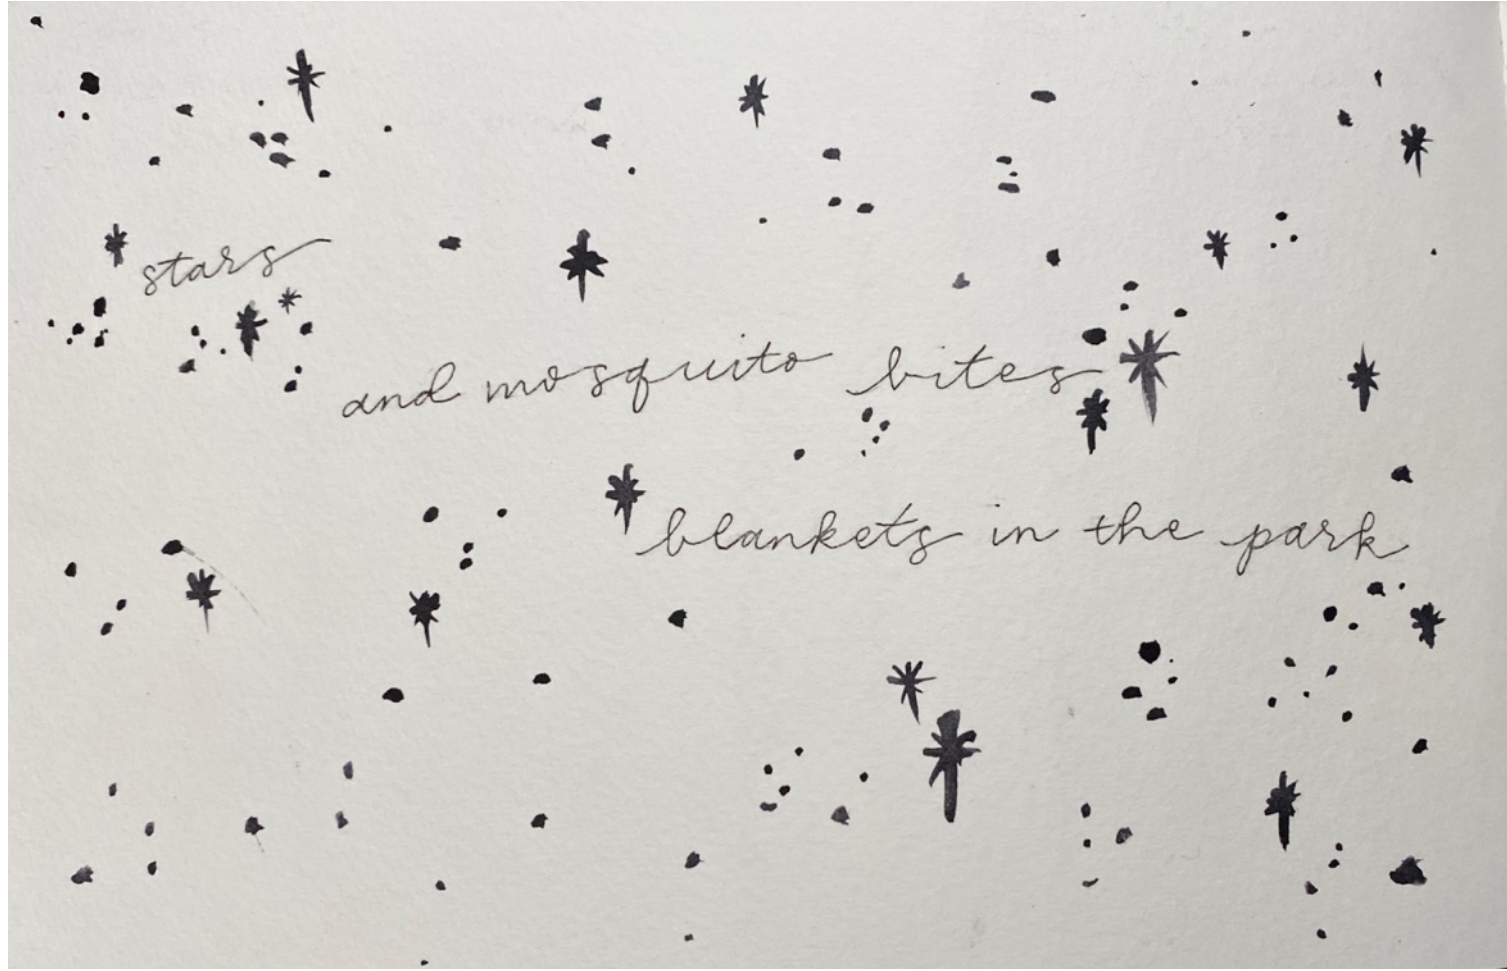 stars
and mosquito bites
blankets in the park